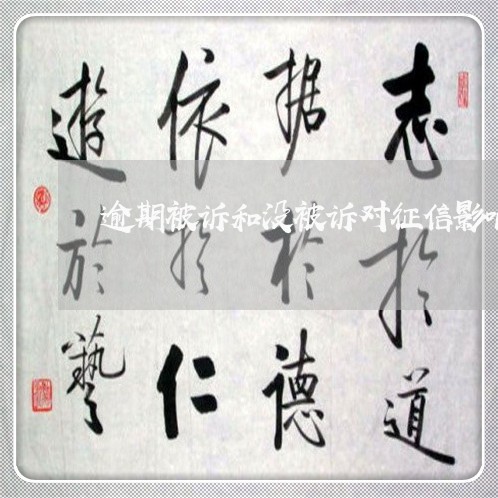 志於道
据於德
依於仁
遊於藝
逾期被诉和没被诉对征信影